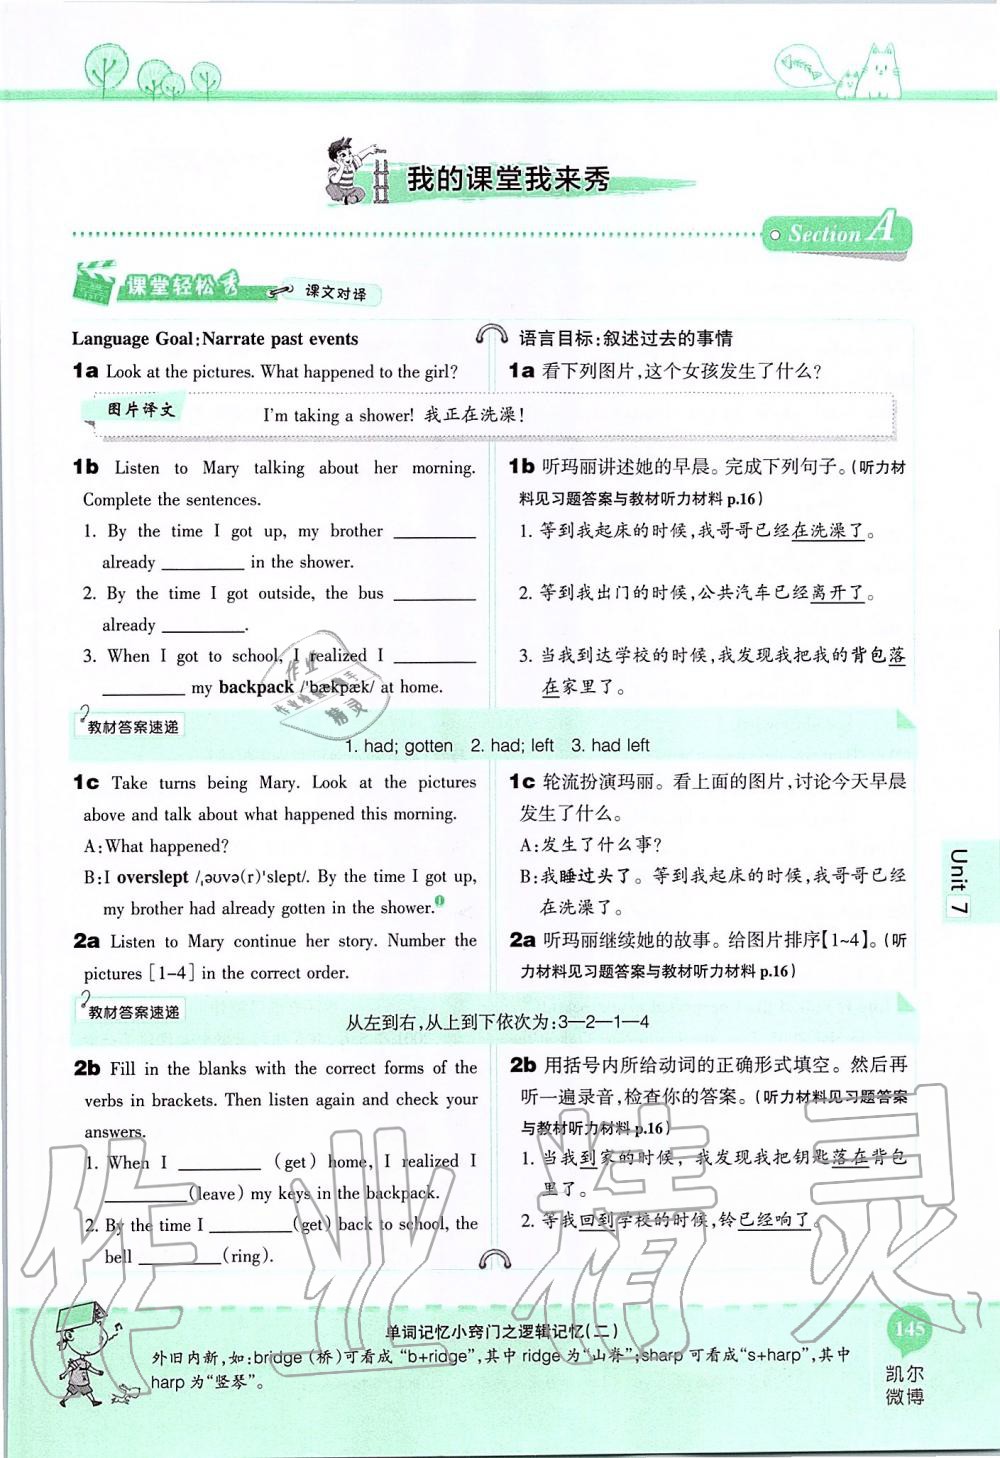 我的课堂我来秀
Section A
课堂轻松秀
课文对译
Language Goal:Narrate past events
1a Look at the pictures. What happened to the girl?
语言目标:叙述过去的事情
1a 看下列图片,这个女孩发生了什么?
图片译文
I'm taking a shower! 我正在洗澡!
1b Listen to Mary talking about her morning.
Complete the sentences.
1. By the time I got up, my brother ________
already ________ in the shower.
2. By the time I got outside, the bus ________
already ________.
3. When I got to school, I realized I ________
________ my backpack /ˈbækpæk/ at home.
1b 听玛丽讲述她的早晨。完成下列句子。(听力材
料见习题答案与教材听力材料 p.16)
1. 等到我起床的时候,我哥哥已经在洗澡了。
2. 等到我出门的时候,公共汽车已经离开了。
3. 当我到达学校的时候,我发现我把我的背包落
在家里了。
教材答案速递
1. had; gotten 2. had; left 3. had left
1c Take turns being Mary. Look at the pictures
above and talk about what happened this morning.
A:What happened?
B:I overslept /ˌəʊvə(r)ˈslept/. By the time I got up,
my brother had already gotten in the shower.❶
2a Listen to Mary continue her story. Number the
pictures [1-4] in the correct order.
1c 轮流扮演玛丽。看上面的图片,讨论今天早晨
发生了什么。
A:发生了什么事?
B:我睡过头了。等到我起床的时候,我哥哥已经
在洗澡了。
2a 听玛丽继续她的故事。给图片排序【1~4】。(听
力材料见习题答案与教材听力材料 p.16)
教材答案速递
从左到右,从上到下依次为:3—2—1—4
2b Fill in the blanks with the correct forms of the
verbs in brackets. Then listen again and check your
answers.
1. When I ________ (get) home, I realized I
________(leave) my keys in the backpack.
2. By the time I ________(get) back to school, the
bell ________(ring).
2b 用括号内所给动词的正确形式填空。然后再
听一遍录音,检查你的答案。(听力材料见习题答案
与教材听力材料 p.16)
1. 当我到家的时候,我发现我把钥匙落在背包
里了。
2. 等我回到学校的时候,铃已经响了。
Unit 7
单词记忆小窍门之逻辑记忆(二)
外旧内新,如:bridge (桥)可看成 "b+ridge",其中 ridge 为"山脊";sharp 可看成"s+harp",其中
harp 为"竖琴"。
145
凯尔
微博
作业精灵